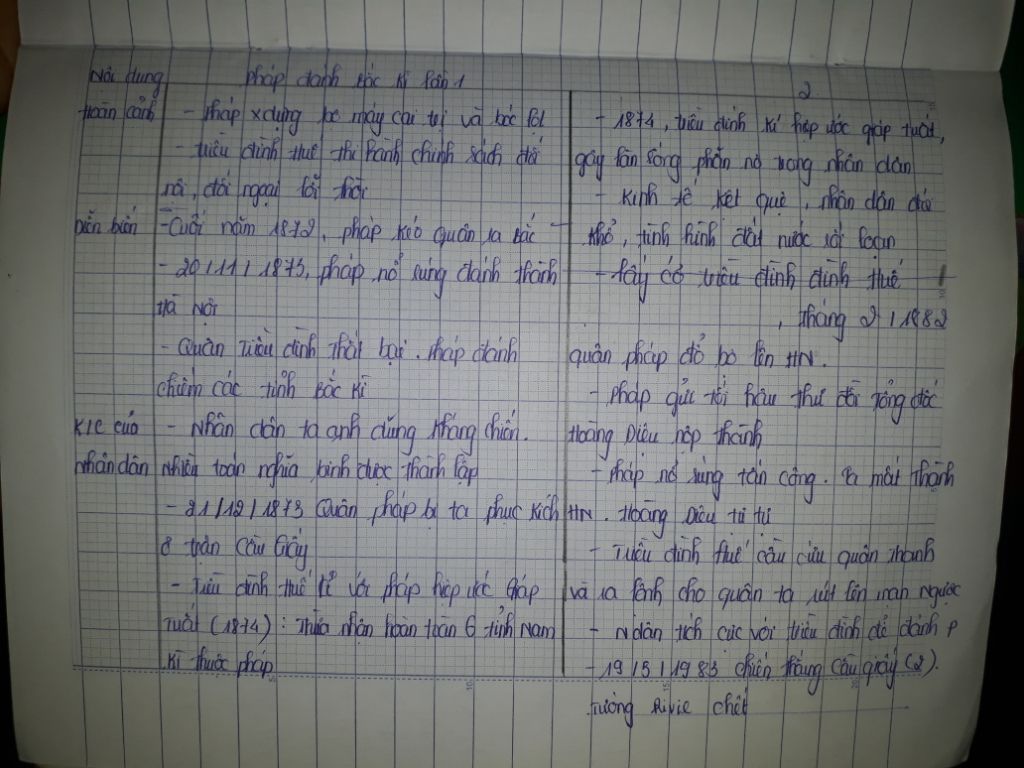 Nội dung pháp đánh Bắc Kì lần 1 2
Hoàn cảnh - Pháp x dựng bộ máy cai trị và bóc lột
- triều đình Huế thi hành chính sách đối
nội, đối ngoại lỗi thời
Diễn biến - Cuối năm 1872, pháp kéo quân ra Bắc
- 20/11/1873, pháp nổ súng đánh thành
Hà Nội
- Quân triều đình thất bại. Pháp đánh
chiếm các tỉnh Bắc Kì
K/c của - Nhân dân ta anh dũng kháng chiến.
nhân dân nhiều toán nghĩa binh được thành lập
- 21/12/1873 Quân pháp bị ta phục kích
ở trận Cầu Giấy
- Triều đình Huế kí với pháp hiệp ước Giáp
Tuất (1874): Thừa nhận hoàn toàn 6 tỉnh Nam
Kì thuộc pháp
- 1874, triều đình kí hiệp ước giáp tuất,
gây làn sóng phẫn nộ trong nhân dân
- Kinh tế kiệt quệ, nhân dân đói
khổ, tình hình đất nước rối loạn
- lấy cớ triều đình đình Huế
, tháng 2/1882
quân pháp đổ bộ lên HN.
- Pháp gửi tối hậu thư đòi Tổng đốc
Hoàng Diệu nộp thành
- Pháp nổ súng tấn công. Ta mất thành
HN. Hoàng Diệu tự tử
- Triều đình Huế cầu cứu quân Thanh
và ra lệnh cho quân ta rút lên mạn ngược
- N dân tích cực với triều đình để đánh P
- 19/5/1983 chiến thắng Cầu giấy (2).
tướng Rivie chết